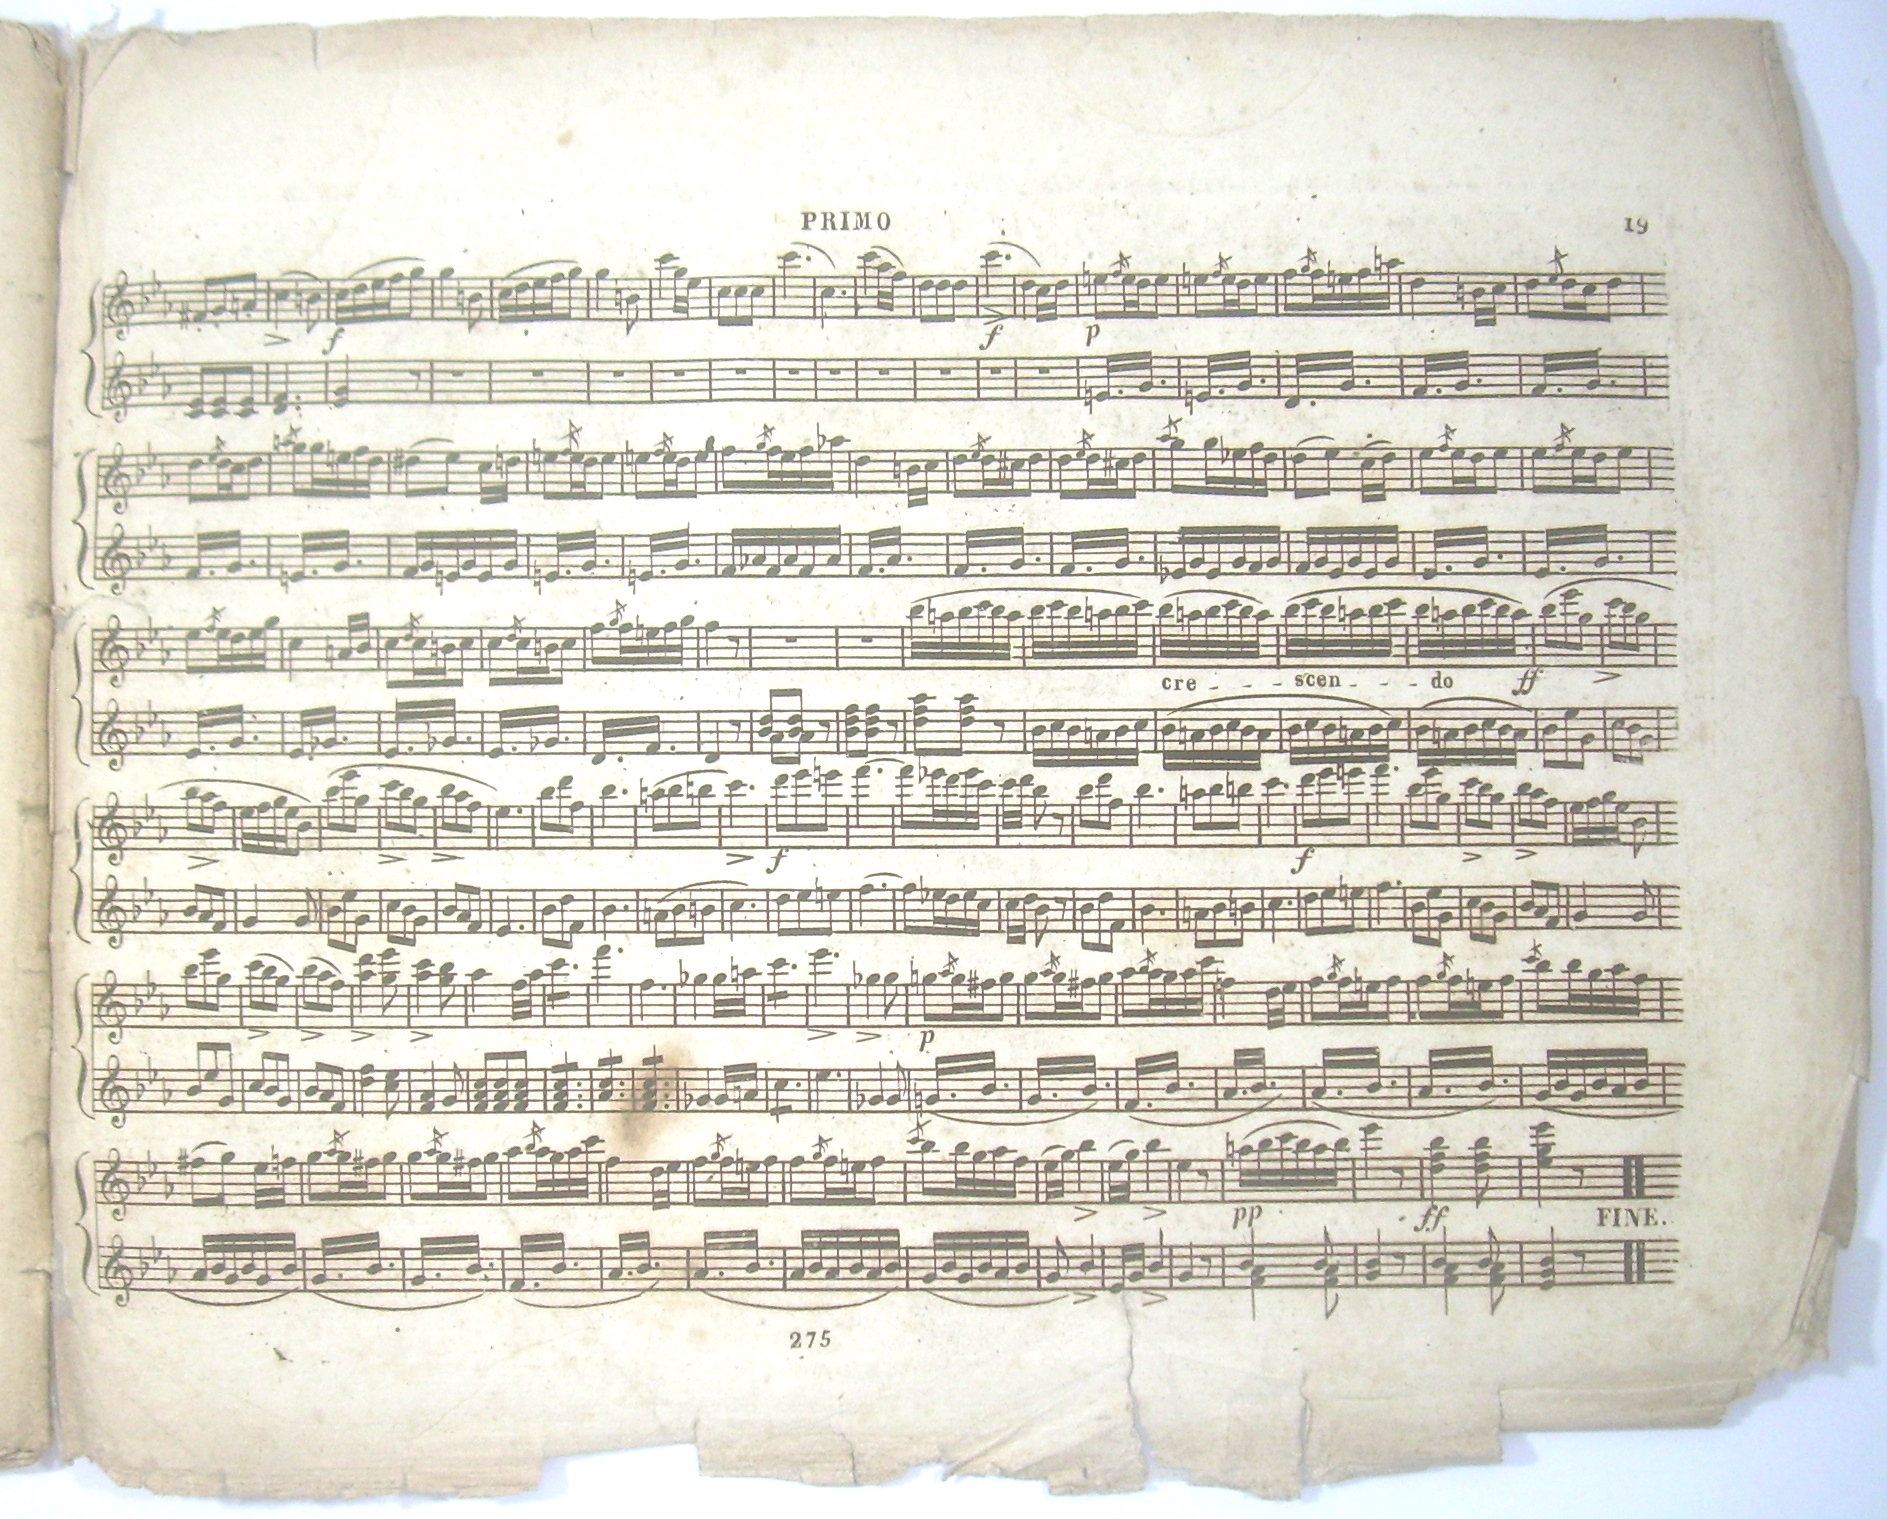 PRIMO
19
f
f
p
cre - - - scen - - - do ff
f
f
p
pp
ff
FINE.
275